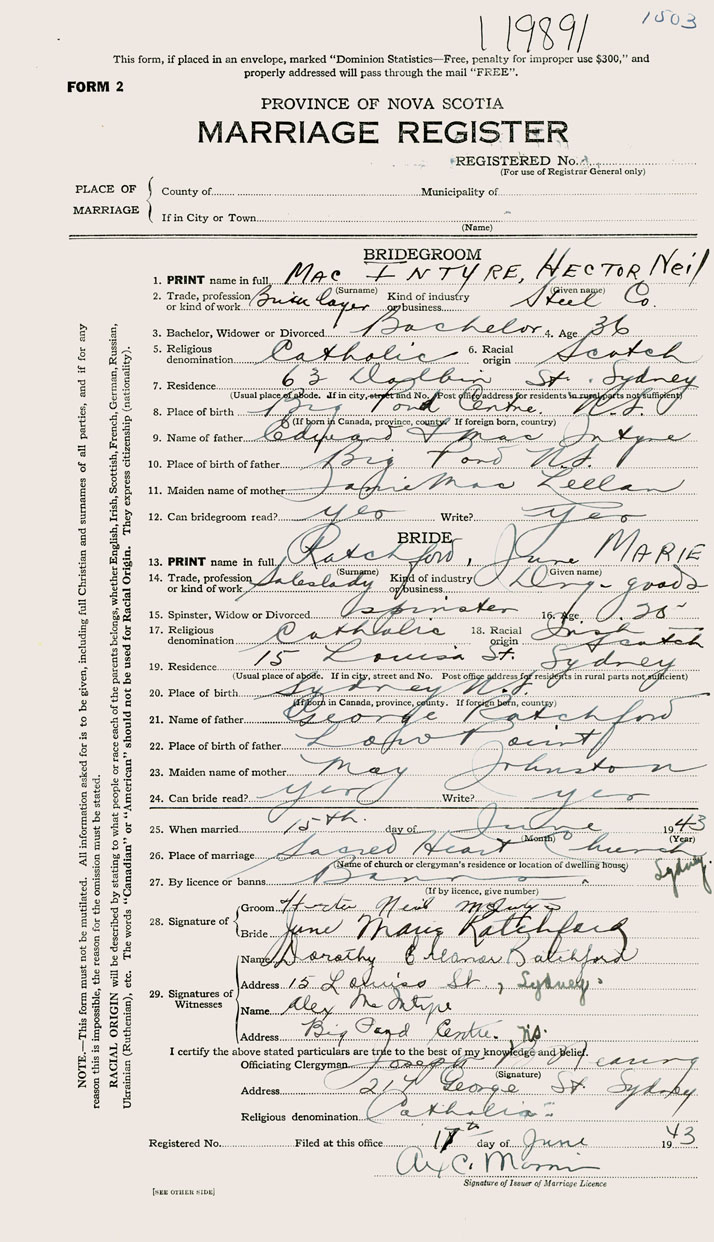 11989 1503
This form, if placed in an envelope, marked "Dominion Statistics—Free, penalty for improper use $300," and
properly addressed will pass through the mail "FREE".
FORM 2
PROVINCE OF NOVA SCOTIA
MARRIAGE REGISTER
REGISTERED No.
(For use of Registrar General only)
PLACE OF MARRIAGE
County of Municipality of
If in City or Town
(Name)
BRIDEGROOM
1. PRINT name in full Mac INTYRE, HECTOR Neil
(Surname) (Given name)
2. Trade, profession or kind of work Brick layer Kind of industry or business Steel Co.
3. Bachelor, Widower or Divorced Bachelor 4. Age 36
5. Religious denomination Catholic 6. Racial origin Scotch
7. Residence 63 St. Sydney
(Usual place of abode. If in city, street and No. Post office address for residents in rural parts not sufficient)
8. Place of birth Big Pond Centre. N.S.
(If born in Canada, province, county. If foreign born, country)
9. Name of father Edward Mac Intyre
10. Place of birth of father Big Pond N.S.
11. Maiden name of mother Janie Mac Lellan
12. Can bridegroom read? yes Write? yes
BRIDE
13. PRINT name in full Ratchford, June MARIE
(Surname) (Given name)
14. Trade, profession or kind of work Saleslady Kind of industry or business Dry-goods
15. Spinster, Widow or Divorced spinster 16. Age 25
17. Religious denomination Catholic 18. Racial origin Irish Scotch
19. Residence 15 Louisa St. Sydney
(Usual place of abode. If in city, street and No. Post office address for residents in rural parts not sufficient)
20. Place of birth Sydney N.S.
(If born in Canada, province, county. If foreign born, country)
21. Name of father George Ratchford
22. Place of birth of father Low Point
23. Maiden name of mother May Johnston
24. Can bride read? yes Write? yes
25. When married 15th. day of June 1943
(Month) (Year)
26. Place of marriage Sacred Heart Church Sydney.
(Name of church or clergyman's residence or location of dwelling house)
27. By licence or banns Banns
(If by licence, give number)
28. Signature of
Groom Hector Neil
Bride June Marie Ratchford
29. Signatures of Witnesses
Name Dorothy Eleanor Ratchford
Address 15 Louisa St., Sydney
Name Alex
Address Big Pond Centre. NS.
I certify the above stated particulars are true to the best of my knowledge and belief.
Officiating Clergyman Joseph
(Signature)
Address 214 George St. Sydney
Religious denomination Catholic
Registered No. Filed at this office 17th day of June 1943
C.
Signature of Issuer of Marriage Licence
[SEE OTHER SIDE]
NOTE.—This form must not be mutilated. All information asked for is to be given, including full Christian and surnames of all parties, and if for any
reason this is impossible, the reason for the omission must be stated.
RACIAL ORIGIN will be described by stating to what people or race each of the parents belongs, whether English, Irish, Scottish, French, German, Russian,
Ukrainian (Ruthenian), etc. The words "Canadian" or "American" should not be used for Racial Origin. They express citizenship (nationality).